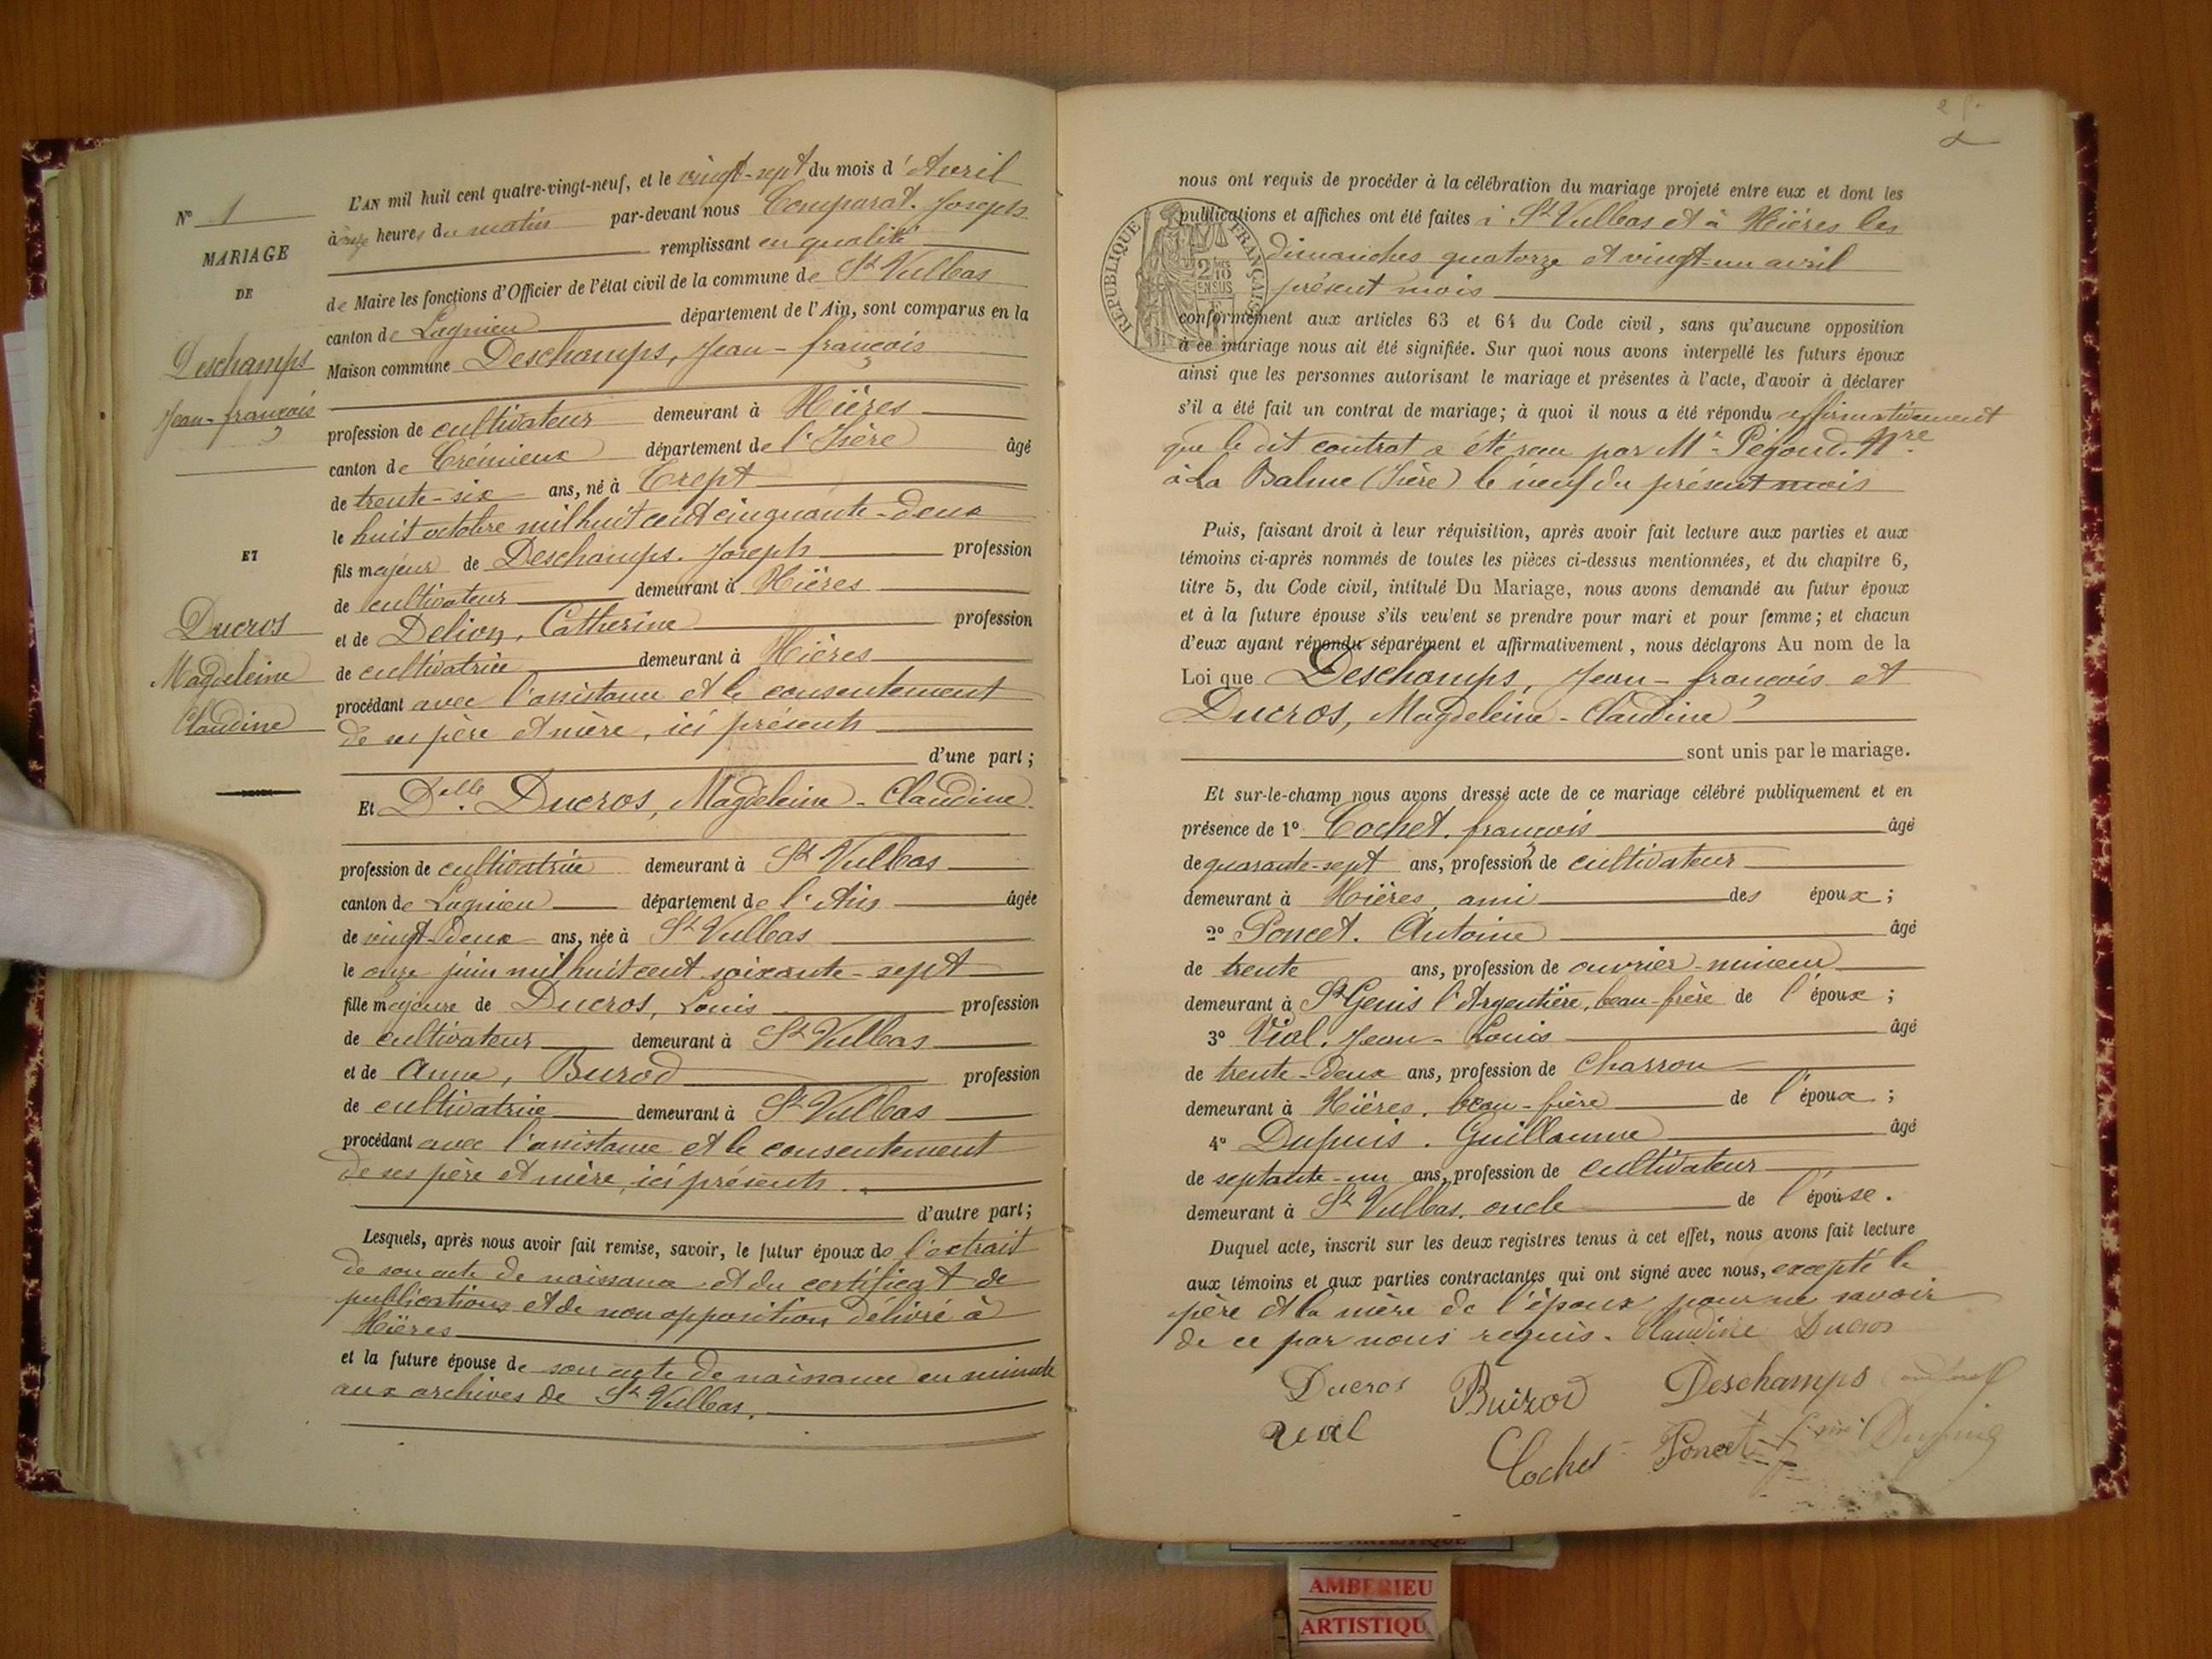 N° 1
MARIAGE
DE
Deschamps
Jean-françois
ET
Ducros
Magdeleine
Claudine
L'AN mil huit cent quatre-vingt-neuf, et le vingt-sept du mois d'Avril
à onze heures du matin par-devant nous Comparat. Joseph
remplissant en qualité
de Maire les fonctions d'Officier de l'état civil de la commune de St Vulbas
canton de Lagnieu département de l'Ain, sont comparus en la
Maison commune Deschamps, Jean-françois
profession de cultivateur demeurant à Hières
canton de Crémieux département de l'Isère âgé
de trente-six ans, né à Trept
le huit octobre mil huit cent cinquante-deux
fils majeur de Deschamps. Joseph profession
de cultivateur demeurant à Hières
et de Delion, Catherine profession
de cultivatrice demeurant à Hières
procédant avec l'assistance et le consentement
de ses père et mère, ici présents
d'une part;
Et Delle. Ducros, Magdeleine-Claudine
profession de cultivatrice demeurant à St Vulbas
canton de Lagnieu département de l'Ain âgée
de vingt-deux ans, née à St Vulbas
le onze juin mil huit cent soixante-sept
fille majeure de Ducros, Louis profession
de cultivateur demeurant à St Vulbas
et de Anne, Burod profession
de cultivatrice demeurant à St Vulbas
procédant avec l'assistance et le consentement
de ses père et mère, ici présents.
d'autre part;
Lesquels, après nous avoir fait remise, savoir, le futur époux de l'extrait
de son acte de naissance et du certificat de
publications et de non opposition délivré à
Hières
et la future épouse de son acte de naissance en minute
aux archives de St Vulbas.
2
nous ont requis de procéder à la célébration du mariage projeté entre eux et dont les
publications et affiches ont été faites à St Vulbas et à Hières les
dimanches quatorze et vingt-un avril
présent mois
RÉPUBLIQUE FRANÇAISE
2/10 EN SUS
conformément aux articles 63 et 64 du Code civil, sans qu'aucune opposition
à ce mariage nous ait été signifiée. Sur quoi nous avons interpellé les futurs époux
ainsi que les personnes autorisant le mariage et présentes à l'acte, d'avoir à déclarer
s'il a été fait un contrat de mariage; à quoi il nous a été répondu affirmativement
que le dit contrat a été reçu par Me. Pégoud. Nre.
à La Balme (Isère) le neuf du présent mois
Puis, faisant droit à leur réquisition, après avoir fait lecture aux parties et aux
témoins ci-après nommés de toutes les pièces ci-dessus mentionnées, et du chapitre 6,
titre 5, du Code civil, intitulé Du Mariage, nous avons demandé au futur époux
et à la future épouse s'ils veulent se prendre pour mari et pour femme; et chacun
d'eux ayant répondu séparément et affirmativement, nous déclarons Au nom de la
Loi que Deschamps, Jean-françois et
Ducros, Magdeleine-Claudine
sont unis par le mariage.
Et sur-le-champ nous avons dressé acte de ce mariage célébré publiquement et en
présence de 1° Cochet. françois âgé
de quarante-sept ans, profession de cultivateur
demeurant à Hières, ami des époux;
2° Poncet. Antoine âgé
de trente ans, profession de ouvrier-mineur
demeurant à St Genis l'Argentière, beau-frère de l'époux;
3° Vial. Jean-Louis âgé
de trente-deux ans, profession de Charron
demeurant à Hières, beau-frère de l'époux;
4° Dupuis. Guillaume âgé
de septante-un ans, profession de cultivateur
demeurant à St Vulbas, oncle de l'épouse.
Duquel acte, inscrit sur les deux registres tenus à cet effet, nous avons fait lecture
aux témoins et aux parties contractantes qui ont signé avec nous, excepté le
père et la mère de l'époux pour ne savoir
de ce par nous requis. Claudine Ducros
Ducros Buirod Deschamps
Vial
Cochet Poncet Dupuis
AMBERIEU
ARTISTIQU